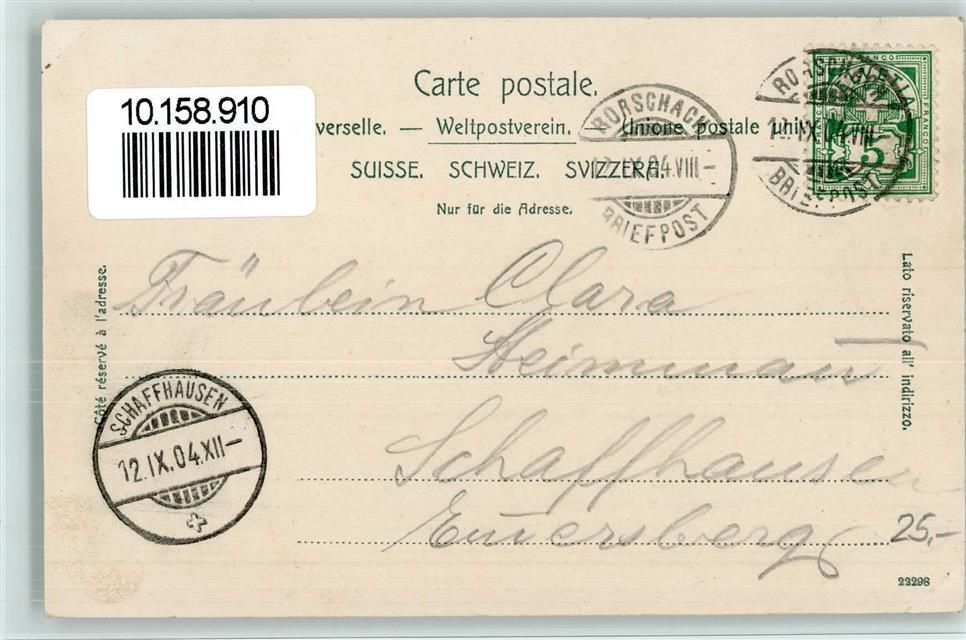 10.158.910
Carte postale.
verselle. — Weltpostverein. — Unione postale
SUISSE. SCHWEIZ. SVIZZERA.
Nur für die Adresse.
RORSCHACH
12.IX.04.VIII–
BRIEFPOST
FRANCO
5
FRANCO
BRIEFPOST
Côté réservé à l'adresse.
Lato riservato all' indirizzo.
Fräulein Clara
Schaffhausen
SCHAFFHAUSEN
12.IX.04.XII–
25,-
22298